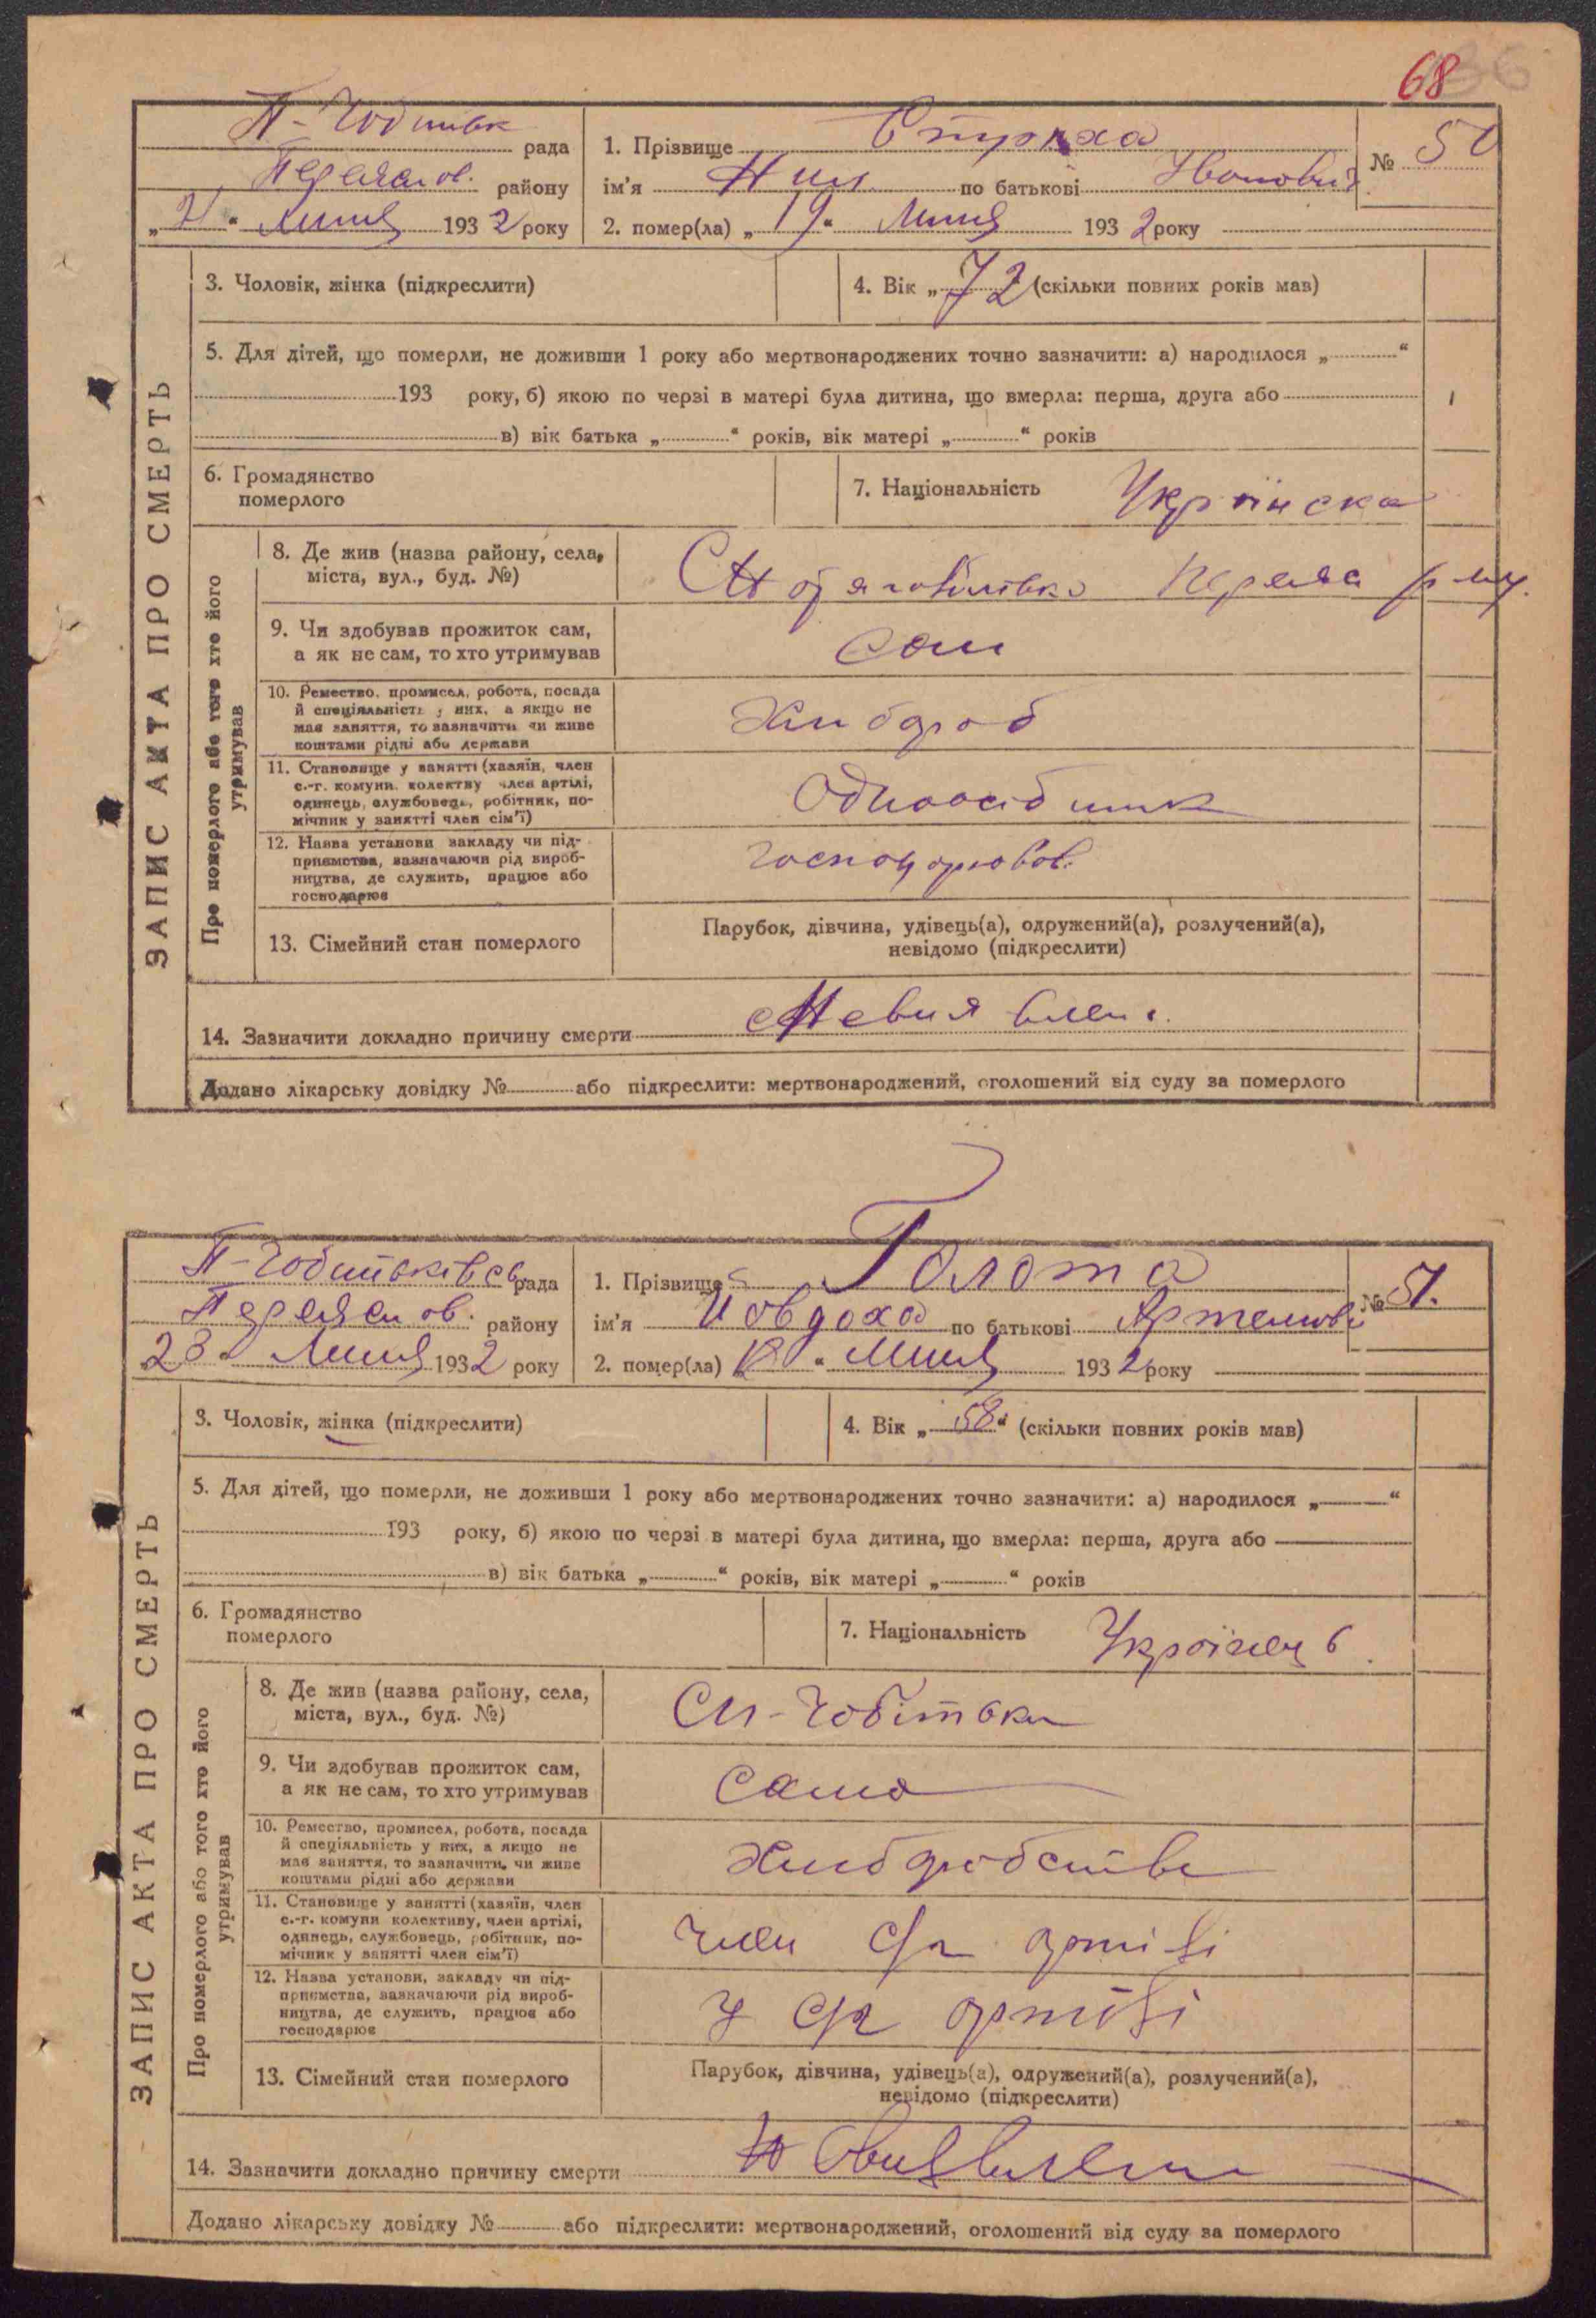 68
П-Чобитьк рада
1. Прізвище Стріха
№ 50
Переясл ов. району
ім'я Нил по батькові Іванович
„21“ Липня 1932 року
2. помер(ла) „19“ Липня 1932 року
ЗАПИС АКТА ПРО СМЕРТЬ
3. Чоловік, жінка (підкреслити)
4. Вік „72 (скільки повних років мав)
5. Для дітей, що померли, не доживши 1 року або мертвонароджених точно зазначити: а) народилося „ “
193 року, б) якою по черзі в матері була дитина, що вмерла: перша, друга або
в) вік батька „ “ років, вік матері „ “ років
6. Громадянство
померлого
7. Національність Українска
Про померлого або того хто його
утримував
8. Де жив (назва району, села,
міста, вул., буд. №)
9. Чи здобував прожиток сам,
а як не сам, то хто утримував
сам
10. Ремество, промисел, робота, посада
й спеціяльність у них, а якщо не
має заняття, то зазначити чи живе
коштами рідні або держави
Хлибороб
11. Становище у занятті (хазяїн, член
с.-г. комуни, колективу член артілі,
одинець, службовець, робітник, по-
мічник у занятті член сім'ї)
Одноосібник
12. Назва установи закладу чи під-
приємства, зазначаючи рід вироб-
ництва, де служить, працює або
господарює
господорював.
13. Сімейний стан померлого
Парубок, дівчина, удівець(а), одружений(а), розлучений(а),
невідомо (підкреслити)
14. Зазначити докладно причину смерти
Додано лікарську довідку № або підкреслити: мертвонароджений, оголошений від суду за померлого
П-Чобитьківсь рада
1. Прізвище Голота
№ 51.
Переясл ов. району
ім'я Човдоха по батькові Артемов
23 Липня 1932 року
2. помер(ла) „18“ Липня 1932 року
ЗАПИС АКТА ПРО СМЕРТЬ
3. Чоловік, жінка (підкреслити)
4. Вік „58“ (скільки повних років мав)
5. Для дітей, що померли, не доживши 1 року або мертвонароджених точно зазначити: а) народилося „ “
193 року, б) якою по черзі в матері була дитина, що вмерла: перша, друга або
в) вік батька „ “ років, вік матері „ “ років
6. Громадянство
померлого
7. Національність Українець.
Про померлого або того хто його
утримував
8. Де жив (назва району, села,
міста, вул., буд. №)
Чобітьки
9. Чи здобував прожиток сам,
а як не сам, то хто утримував
сама
10. Ремество, промисел, робота, посада
й спеціяльність у них, а якщо не
має заняття, то зазначити, чи живе
коштами рідні або держави
Хлибробство
11. Становище у занятті (хазяїн, член
с.-г. комуни колективу, член артілі,
одинець, службовець, робітник, по-
мічник у занятті член сім'ї)
член с/г артілі
12. Назва установи, закладу чи під-
приємства, зазначаючи рід вироб-
ництва, де служить, працює або
господарює
У с/г артілі
13. Сімейний стан померлого
Парубок, дівчина, удівець(а), одружений(а), розлучений(а),
невідомо (підкреслити)
14. Зазначити докладно причину смерти
Додано лікарську довідку № або підкреслити: мертвонароджений, оголошений від суду за померлого